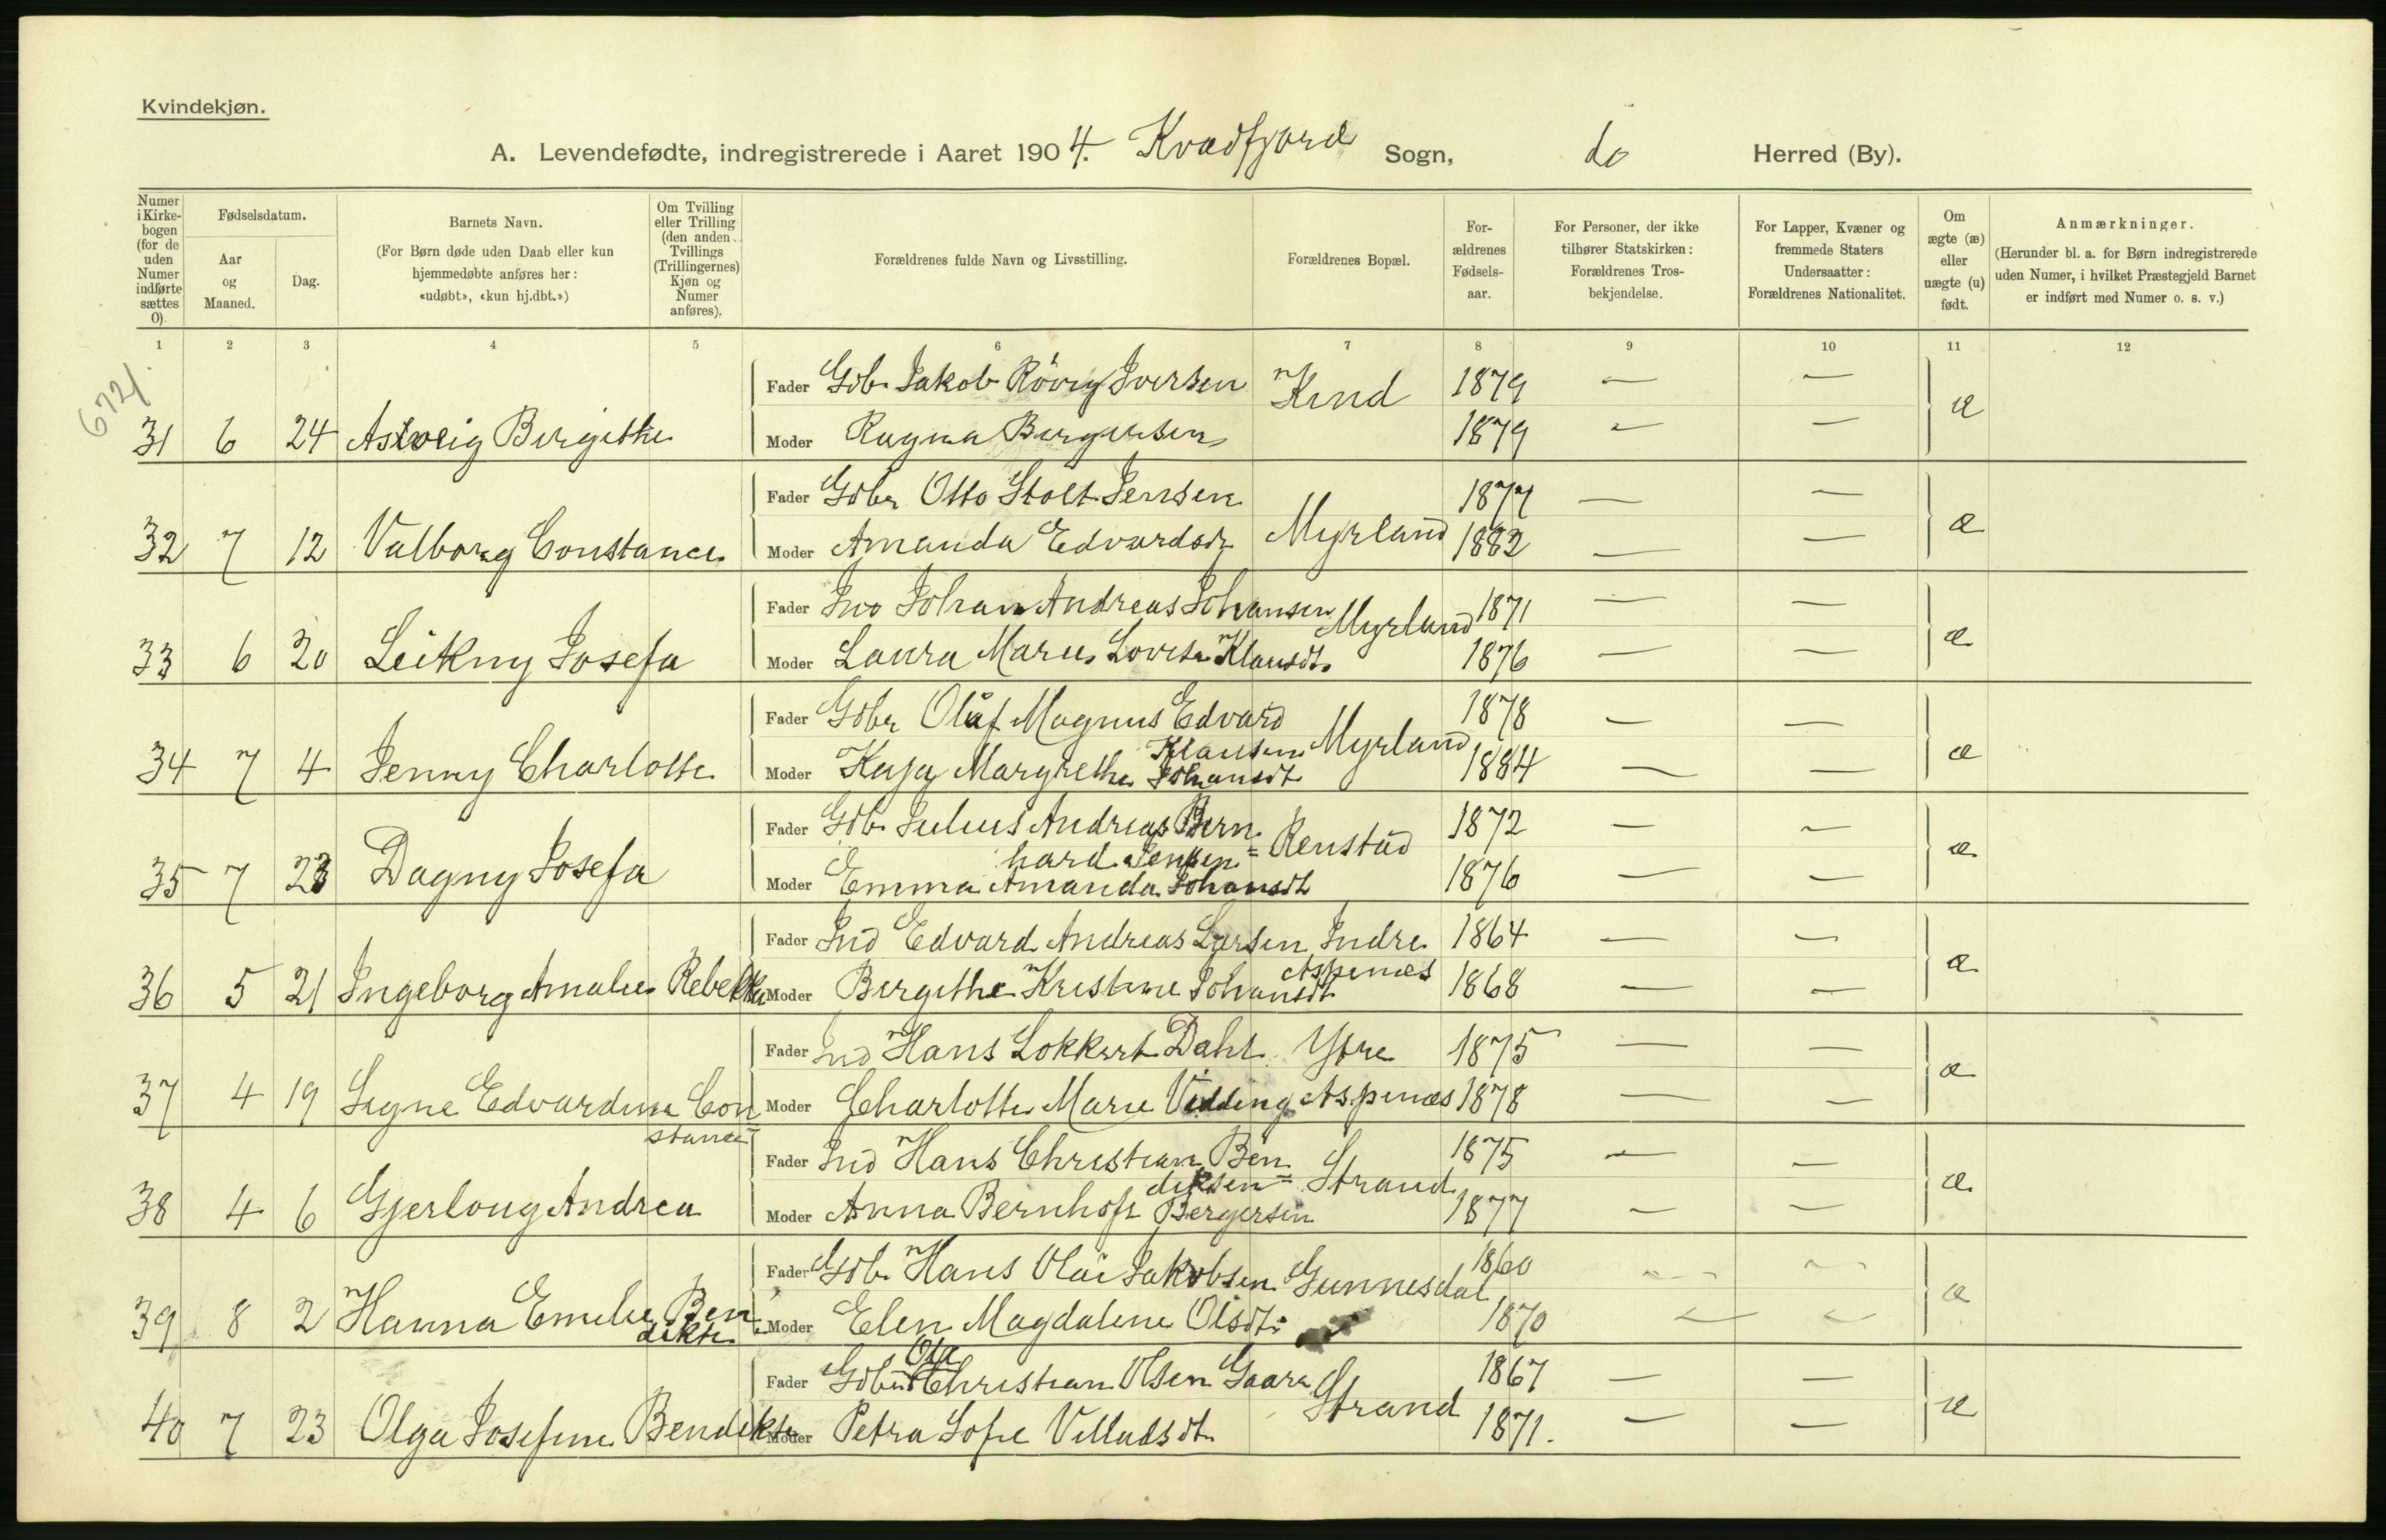 Kvindekjøn.
A. Levendefødte, indregistrerede i Aaret 1904. Kvædfjord Sogn, do Herred (By).
Numer i Kirkebogen (for de uden Numer indførte sættes 0).
Fødselsdatum.
Aar og Maaned.
Dag.
Barnets Navn.
(For Børn døde uden Daab eller kun hjemmedøbte anføres her: «udøbt», «kun hj.dbt.»)
Om Tvilling eller Trilling (den anden Tvillings (Trillingernes) Kjøn og Numer anføres).
Forældrenes fulde Navn og Livsstilling.
Forældrenes Bopæl.
Forældrenes Fødselsaar.
For Personer, der ikke tilhører Statskirken: Forældrenes Trosbekjendelse.
For Lapper, Kvæner og fremmede Staters Undersaatter: Forældrenes Nationalitet.
Om ægte (æ) eller uægte (u) født.
Anmærkninger.
(Herunder bl. a. for Børn indregistrerede uden Numer, i hvilket Præstegjeld Barnet er indført med Numer o. s. v.)
1 2 3 4 5 6 7 8 9 10 11 12
672/
Fader Gdb. Jakob Røvig Iversen Kind 1879 — — æ
31 6 24 Astveig Birgithe Moder Ragna Bergersen 1879 — —
Fader Gdbr Otto Stolt Jensen 1877 — — æ
32 7 12 Valborg Constance Moder Amanda Edvardsdt Myrland 1882 — —
Fader Ind Johan Andreas Johansen Myrland 1871 — — æ
33 6 20 Leikny Josefa Moder Laura Marie Lovise Klausdt. 1876 — —
Fader Gdbr Olaf Magnus Edvard Klausen Myrland 1878 — — æ
34 7 4 Jenny Charlotte Moder Kaja Margrethe Johansdt 1884 — —
Fader Gdb. Julius Andreas Bernhard Jensen Renstad 1872 — — æ
35 7 23 Dagny Josefa Moder Emma Amanda Johansdt 1876 — —
Fader Ind Edvard Andreas Larsen Indre Aspenes 1864 — — æ
36 5 21 Ingeborg Amalie Rebekka Moder Birgithe Kristine Johansdt 1868 — —
Fader Ind Hans Lokkert Dahl Ytre Aspenes 1875 — — æ
37 4 19 Signe Edvardine Constance Moder Charlotte Marie Vidding 1878 — —
Fader Ind Hans Christian Bendiksen Strand 1875 — — æ
38 4 6 Gjerloug Andrea Moder Anna Bernhoft Bergersen 1877 — —
Fader Gdb. Hans Olai Jakobsen Gunnesdal 1860 — — æ
39 8 2 Hanna Emelie Bendikte Moder Elen Magdalene Olsdt. 1870 — —
Fader Gdbr Ole Christian Olsen Gaara Strand 1867 — — æ
40 7 23 Olga Josefine Bendikte Moder Petra Sofie Villadsdt. 1871. — —